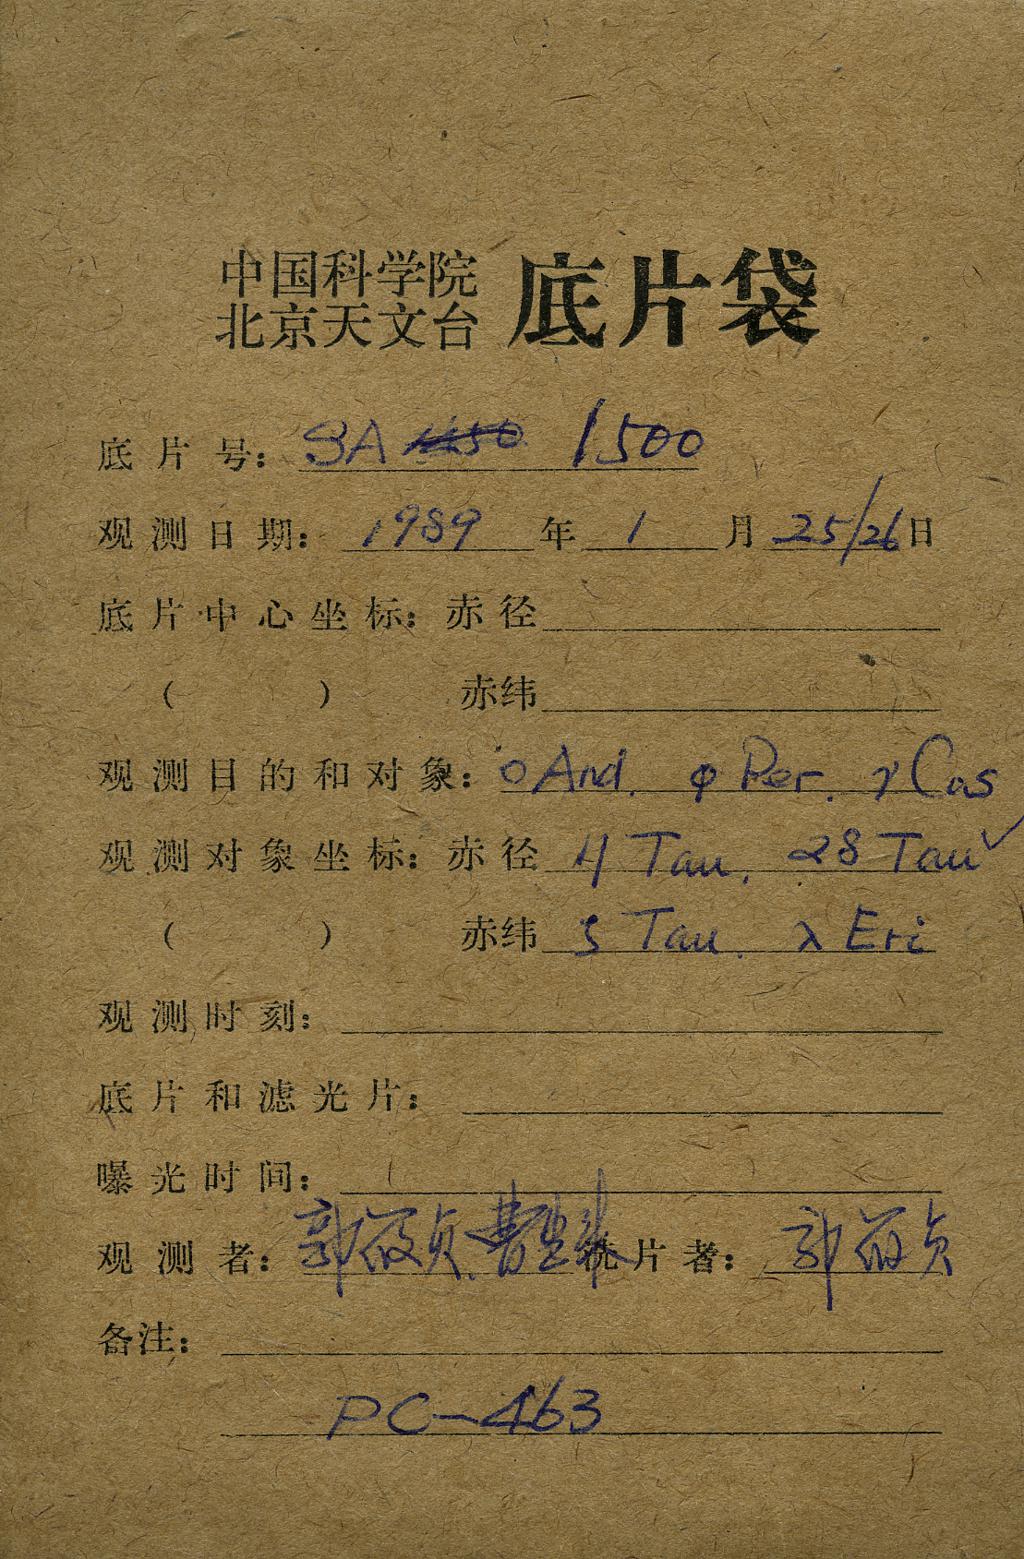 中国科学院
北京天文台 底片袋
底片号：SA 1500
观测日期：1989年1月25/26日
底片中心坐标：赤径
（ ） 赤纬
观测目的和对象：ο And. φ Per. γ Cas
观测对象坐标：赤径 4 Tau. 28 Tau ✓
（ ） 赤纬 ζ Tau. λ Eri
观测时刻：
底片和滤光片：
曝光时间：
观测者：郭 贞 洗片者：郭 贞
备注：
PC-463